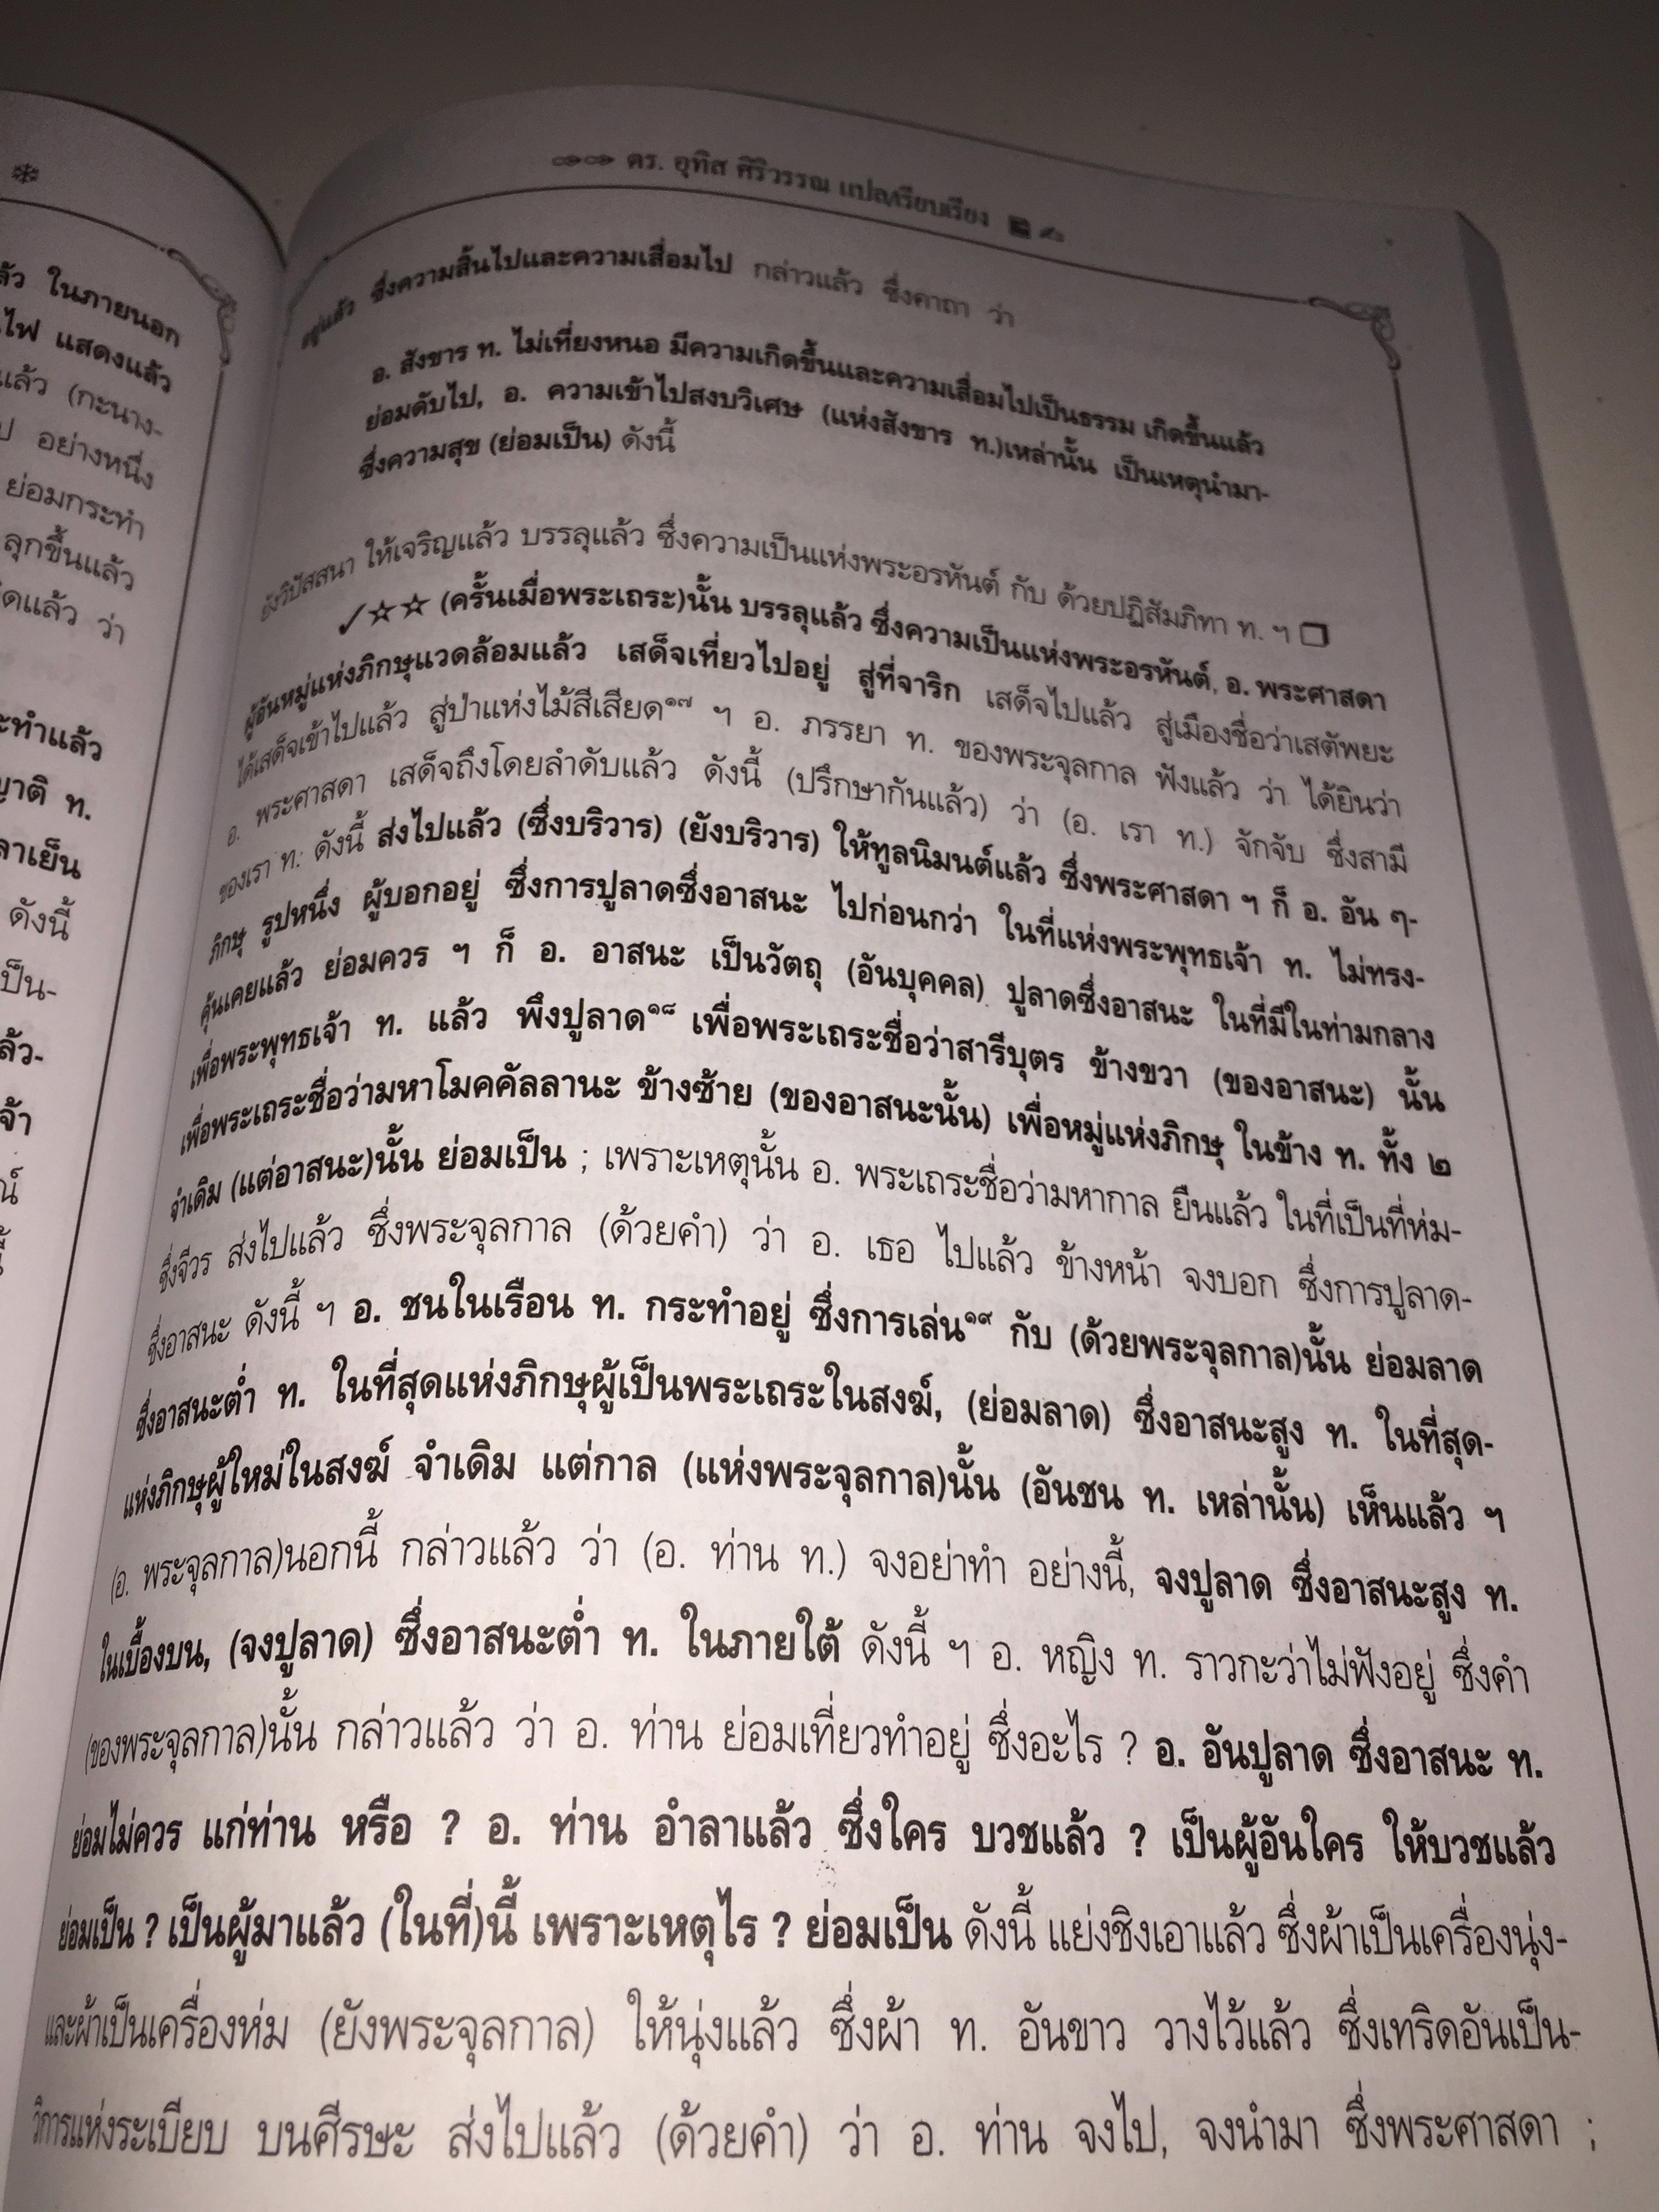 ล้ว ในภายนอก
ไฟ แสดงแล้ว
แล้ว (กะนาง-
ป อย่างหนึ่ง
ย่อมกระทำ
ลุกขึ้นแล้ว
ดแล้ว ว่า
ะทำแล้ว
ญาติ ท.
ลาเย็น
ดังนี้
เป็น-
ล้ว-
จ้า
ดร. อุทิส ศิริวรรณ แปล/เรียบเรียง
อยู่แล้ว ซึ่งความสิ้นไปและความเสื่อมไป กล่าวแล้ว ซึ่งคาถา ว่า
อ. สังขาร ท. ไม่เที่ยงหนอ มีความเกิดขึ้นและความเสื่อมไปเป็นธรรม เกิดขึ้นแล้ว
ย่อมดับไป, อ. ความเข้าไปสงบวิเศษ (แห่งสังขาร ท.)เหล่านั้น เป็นเหตุนำมา-
ซึ่งความสุข (ย่อมเป็น) ดังนี้
ยังวิปัสสนา ให้เจริญแล้ว บรรลุแล้ว ซึ่งความเป็นแห่งพระอรหันต์ กับ ด้วยปฏิสัมภิทา ท. ฯ ❒
✓☆☆ (ครั้นเมื่อพระเถระ)นั้น บรรลุแล้ว ซึ่งความเป็นแห่งพระอรหันต์, อ. พระศาสดา
ผู้อันหมู่แห่งภิกษุแวดล้อมแล้ว เสด็จเที่ยวไปอยู่ สู่ที่จาริก เสด็จไปแล้ว สู่เมืองชื่อว่าเสตัพยะ
ได้เสด็จเข้าไปแล้ว สู่ป่าแห่งไม้สีเสียด๑๗ ฯ อ. ภรรยา ท. ของพระจุลกาล ฟังแล้ว ว่า ได้ยินว่า
อ. พระศาสดา เสด็จถึงโดยลำดับแล้ว ดังนี้ (ปรึกษากันแล้ว) ว่า (อ. เรา ท.) จักจับ ซึ่งสามี
ของเรา ท. ดังนี้ ส่งไปแล้ว (ซึ่งบริวาร) (ยังบริวาร) ให้ทูลนิมนต์แล้ว ซึ่งพระศาสดา ฯ ก็ อ. อัน ๆ-
ภิกษุ รูปหนึ่ง ผู้บอกอยู่ ซึ่งการปูลาดซึ่งอาสนะ ไปก่อนกว่า ในที่แห่งพระพุทธเจ้า ท. ไม่ทรง-
คุ้นเคยแล้ว ย่อมควร ฯ ก็ อ. อาสนะ เป็นวัตถุ (อันบุคคล) ปูลาดซึ่งอาสนะ ในที่มีในท่ามกลาง
เพื่อพระพุทธเจ้า ท. แล้ว พึงปูลาด๑๘ เพื่อพระเถระชื่อว่าสารีบุตร ข้างขวา (ของอาสนะ) นั้น
เพื่อพระเถระชื่อว่ามหาโมคคัลลานะ ข้างซ้าย (ของอาสนะนั้น) เพื่อหมู่แห่งภิกษุ ในข้าง ท. ทั้ง ๒
จำเดิม (แต่อาสนะ)นั้น ย่อมเป็น ; เพราะเหตุนั้น อ. พระเถระชื่อว่ามหากาล ยืนแล้ว ในที่เป็นที่ห่ม-
ซึ่งจีวร ส่งไปแล้ว ซึ่งพระจุลกาล (ด้วยคำ) ว่า อ. เธอ ไปแล้ว ข้างหน้า จงบอก ซึ่งการปูลาด-
ซึ่งอาสนะ ดังนี้ ฯ อ. ชนในเรือน ท. กระทำอยู่ ซึ่งการเล่น๑๙ กับ (ด้วยพระจุลกาล)นั้น ย่อมลาด
ซึ่งอาสนะต่ำ ท. ในที่สุดแห่งภิกษุผู้เป็นพระเถระในสงฆ์, (ย่อมลาด) ซึ่งอาสนะสูง ท. ในที่สุด-
แห่งภิกษุผู้ใหม่ในสงฆ์ จำเดิม แต่กาล (แห่งพระจุลกาล)นั้น (อันชน ท. เหล่านั้น) เห็นแล้ว ฯ
(อ. พระจุลกาล)นอกนี้ กล่าวแล้ว ว่า (อ. ท่าน ท.) จงอย่าทำ อย่างนี้, จงปูลาด ซึ่งอาสนะสูง ท.
ในเบื้องบน, (จงปูลาด) ซึ่งอาสนะต่ำ ท. ในภายใต้ ดังนี้ ฯ อ. หญิง ท. ราวกะว่าไม่ฟังอยู่ ซึ่งคำ
(ของพระจุลกาล)นั้น กล่าวแล้ว ว่า อ. ท่าน ย่อมเที่ยวทำอยู่ ซึ่งอะไร ? อ. อันปูลาด ซึ่งอาสนะ ท.
ย่อมไม่ควร แก่ท่าน หรือ ? อ. ท่าน อำลาแล้ว ซึ่งใคร บวชแล้ว ? เป็นผู้อันใคร ให้บวชแล้ว
ย่อมเป็น ? เป็นผู้มาแล้ว (ในที่)นี้ เพราะเหตุไร ? ย่อมเป็น ดังนี้ แย่งชิงเอาแล้ว ซึ่งผ้าเป็นเครื่องนุ่ง-
และผ้าเป็นเครื่องห่ม (ยังพระจุลกาล) ให้นุ่งแล้ว ซึ่งผ้า ท. อันขาว วางไว้แล้ว ซึ่งเทริดอันเป็น-
วิการแห่งระเบียบ บนศีรษะ ส่งไปแล้ว (ด้วยคำ) ว่า อ. ท่าน จงไป, จงนำมา ซึ่งพระศาสดา ;